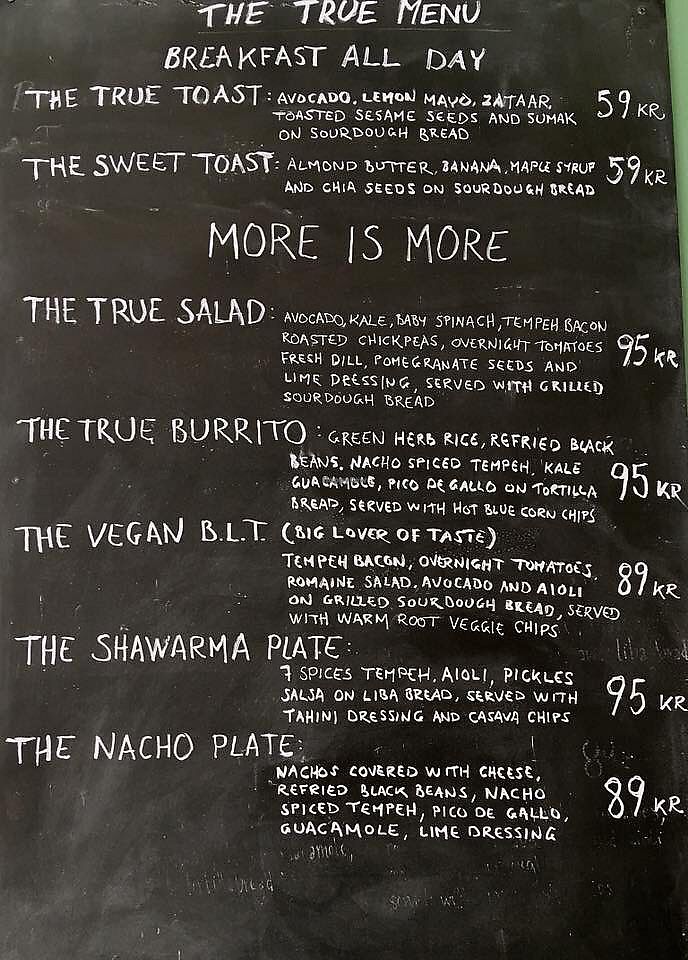 THE TRUE MENU
BREAKFAST ALL DAY
THE TRUE TOAST: AVOCADO, LEMON MAYO, ZATAAR, 59 KR
TOASTED SESAME SEEDS AND SUMAK
ON SOURDOUGH BREAD
THE SWEET TOAST: ALMOND BUTTER, BANANA, MAPLE SYRUP 59 KR
AND CHIA SEEDS ON SOURDOUGH BREAD
MORE IS MORE
THE TRUE SALAD: AVOCADO, KALE, BABY SPINACH, TEMPEH BACON
ROASTED CHICKPEAS, OVERNIGHT TOMATOES 95 KR
FRESH DILL, POMEGRANATE SEEDS AND
LIME DRESSING, SERVED WITH GRILLED
SOURDOUGH BREAD
THE TRUE BURRITO: GREEN HERB RICE, REFRIED BLACK
BEANS, NACHO SPICED TEMPEH, KALE
GUACAMOLE, PICO DE GALLO ON TORTILLA 95 KR
BREAD, SERVED WITH HOT BLUE CORN CHIPS
THE VEGAN B.L.T. (BIG LOVER OF TASTE)
TEMPEH BACON, OVERNIGHT TOMATOES,
ROMAINE SALAD, AVOCADO AND AIOLI 89 KR
ON GRILLED SOURDOUGH BREAD, SERVED
WITH WARM ROOT VEGGIE CHIPS
THE SHAWARMA PLATE:
7 SPICES TEMPEH, AIOLI, PICKLES
SALSA ON LIBA BREAD, SERVED WITH 95 KR
TAHINI DRESSING AND CASAVA CHIPS
THE NACHO PLATE:
NACHOS COVERED WITH CHEESE,
REFRIED BLACK BEANS, NACHO 89 KR
SPICED TEMPEH, PICO DE GALLO,
GUACAMOLE, LIME DRESSING